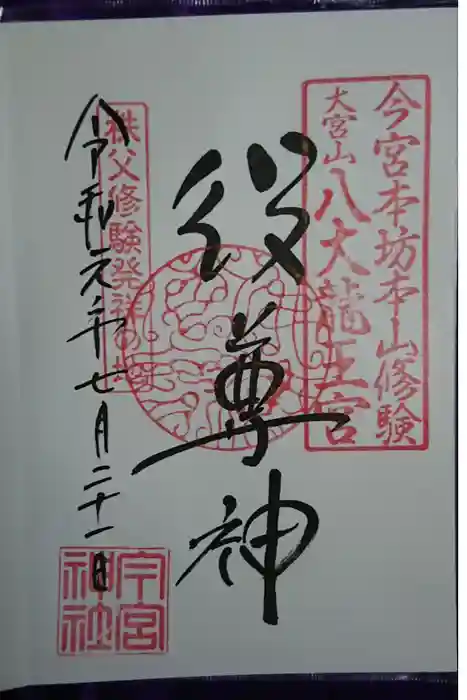 今宮本坊本山修験
大宮山八大龍王宮
役尊神
秩父修験発祥の地
令和元年七月二十一日
今宮神社